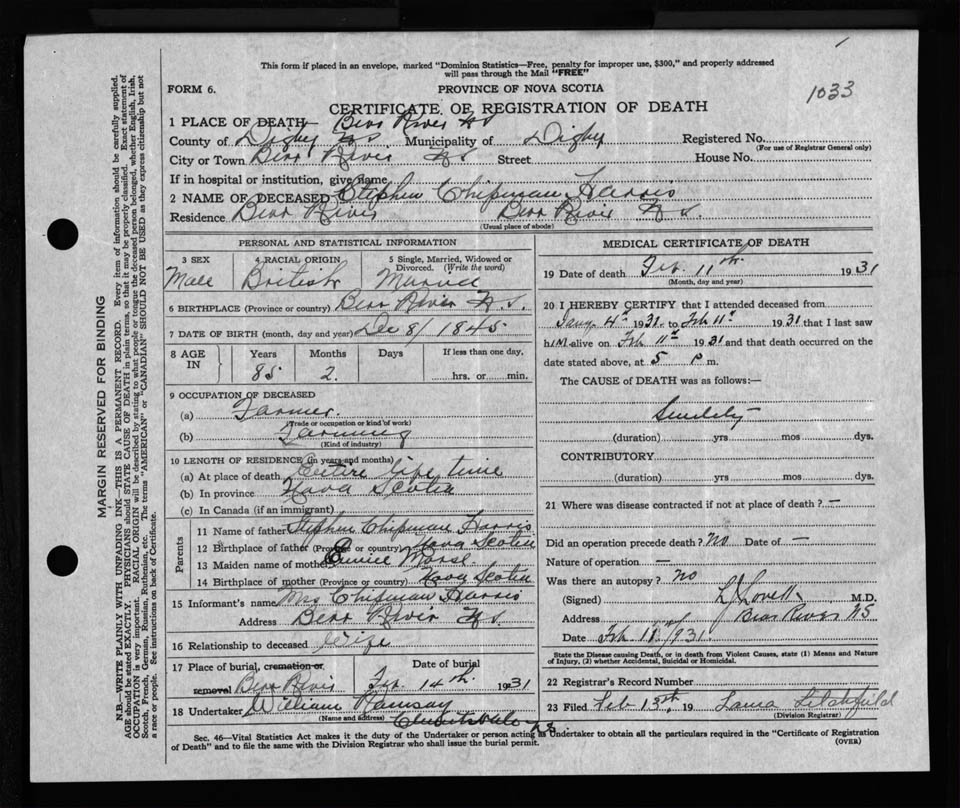 This form if placed in an envelope, marked "Dominion Statistics—Free, penalty for improper use, $300," and properly addressed
will pass through the Mail "FREE"
FORM 6.
PROVINCE OF NOVA SCOTIA
1033
CERTIFICATE OF REGISTRATION OF DEATH
1 PLACE OF DEATH Bear River NS
County of Digby NS Municipality of Digby Registered No.
(For use of Registrar General only)
City or Town Bear River NS Street House No.
If in hospital or institution, give name
2 NAME OF DECEASED Stephen Chipman Harris
Residence Bear River Bear River N S.
(Usual place of abode)
PERSONAL AND STATISTICAL INFORMATION
3 SEX 4 RACIAL ORIGIN 5 Single, Married, Widowed or
Divorced. (Write the word)
Male British Married
6 BIRTHPLACE (Province or country) Bear River N S.
7 DATE OF BIRTH (month, day and year) Dec 8/1845
8 AGE IN Years Months Days If less than one day,
85 2. hrs. or min.
9 OCCUPATION OF DECEASED
(a) Farmer.
(Trade or occupation or kind of work)
(b) Farming
(Kind of industry)
10 LENGTH OF RESIDENCE (in years and months)
(a) At place of death Entire life time
(b) In province Nova Scotia
(c) In Canada (if an immigrant)
Parents
11 Name of father Stephen Chipman Harris
12 Birthplace of father (Province or country) Nova Scotia
13 Maiden name of mother Eunice Morse
14 Birthplace of mother (Province or country) Nova Scotia
15 Informant's name Mrs Chipman Harris
Address Bear River N S.
16 Relationship to deceased Wife
17 Place of burial, cremation or Date of burial
removal Bear River Feb. 14th. 1931
18 Undertaker William Ramsay
(Name and address) Clementsvale NS
MEDICAL CERTIFICATE OF DEATH
19 Date of death Feb. 11th. 1931
(Month, day and year)
20 I HEREBY CERTIFY that I attended deceased from
Jany 4th 1931 to Feb 11th 1931 that I last saw
him alive on Feb 11th 1931 and that death occurred on the
date stated above, at 5 P m.
The CAUSE of DEATH was as follows:—
Senility
(duration) yrs mos dys.
CONTRIBUTORY
(duration) yrs mos dys.
21 Where was disease contracted if not at place of death? —
Did an operation precede death? No Date of —
Nature of operation —
Was there an autopsy? No
(Signed) L J Lovett M.D.
Address Bear River NS
Date Feb 1931
State the Disease causing Death, or in death from Violent Causes, state (1) Means and Nature
of Injury, (2) whether Accidental, Suicidal or Homicidal.
22 Registrar's Record Number
23 Filed Feb 13th, 19 Laura Litchfield
(Division Registrar)
Sec. 46—Vital Statistics Act makes it the duty of the Undertaker or person acting as Undertaker to obtain all the particulars required in the "Certificate of Registration
of Death" and to file the same with the Division Registrar who shall issue the burial permit.
(OVER)
MARGIN RESERVED FOR BINDING
N.B.—WRITE PLAINLY WITH UNFADING INK—THIS IS A PERMANENT RECORD. Every item of information should be carefully supplied.
AGE should be stated EXACTLY. PHYSICIANS should STATE CAUSE OF DEATH in plain terms, so that it may be properly classified. Exact statement of
OCCUPATION is very important. RACIAL ORIGIN will be described by stating to what people or tongue the deceased person belonged, whether English, Irish,
Scotch, French, German, Russian, Ruthenian, etc. The terms "AMERICAN" or "CANADIAN" SHOULD NOT BE USED as they express citizenship but not
a race or people. See instructions on back of Certificate.